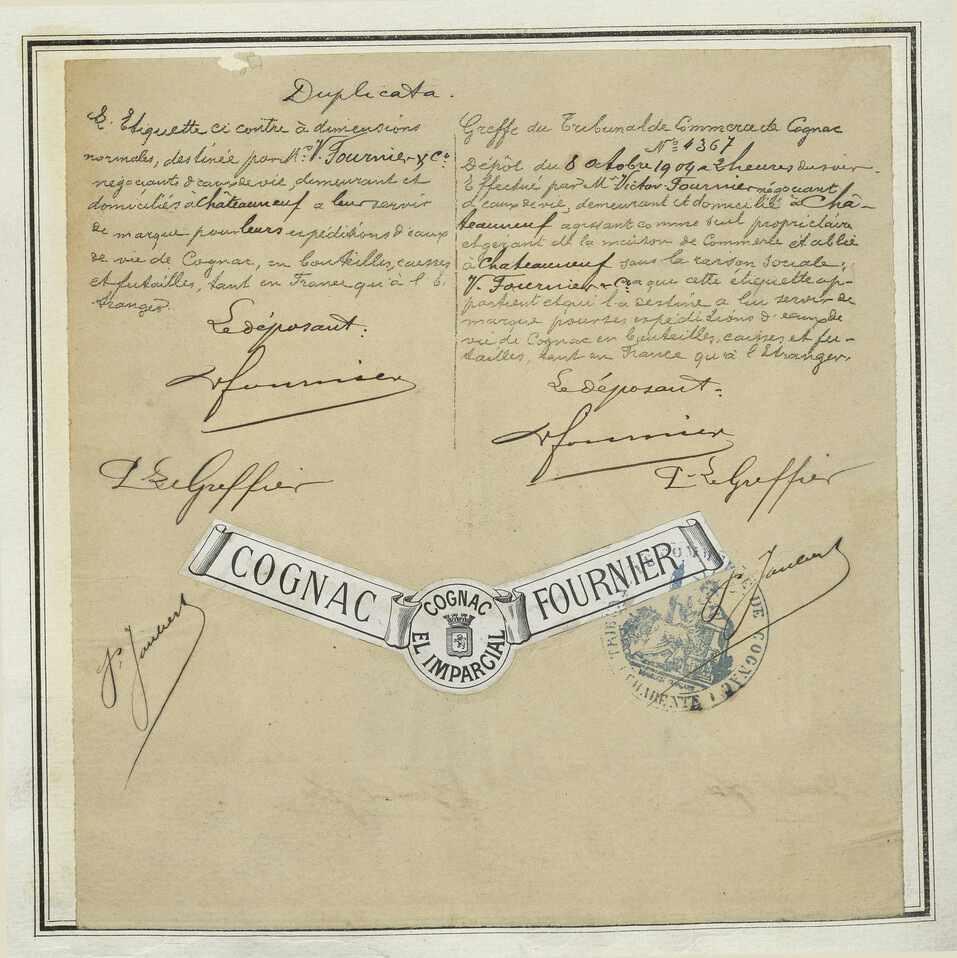 Duplicata.
Etiquette ci contre à dimensions
normales, destinée par Mr. V. Fournier & Cie
négociants d'eaux de vie, demeurant et
domiciliés à Châteauneuf a leur servir
de marque pour leurs expéditions d'eaux
de vie de Cognac, en bouteilles, caisses
et futailles, tant en France qu'à l'E-
tranger.
Le déposant.
V Fournier
Pr Le Greffier
Greffe du Tribunal de Commerce de Cognac
No 4367
Dépôt du 8 Octobre 1904 a 2 heures du soir.
Effectué par Mr Victor Fournier négociant
d'eaux de vie, demeurant et domicilié à Châ-
teauneuf agissant comme seul propriétaire
et gérant de la maison de Commerce établie
à Chateauneuf sous la raison sociale:
V. Fournier & Cie a qui cette étiquette ap-
partient et qui l'a destine a lui servir de
marque pour ses expéditions d'eaux de
vie de Cognac en bouteilles, caisses et fu-
tailles, tant en France qu'à l'Etranger.
Le déposant.
V Fournier
Pr Le Greffier
COGNAC FOURNIER
COGNAC
EL IMPARCIAL
COMMERCE DE COGNAC
CHARENTE